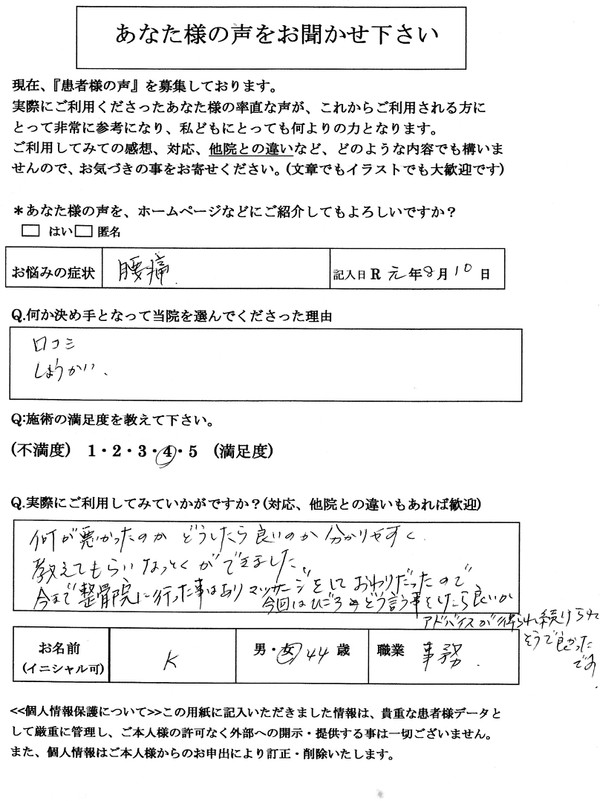 あなた様の声をお聞かせ下さい
現在、『患者様の声』を募集しております。
実際にご利用くださったあなた様の率直な声が、これからご利用される方に
とって非常に参考になり、私どもにとっても何よりの力となります。
ご利用してみての感想、対応、他院との違いなど、どのような内容でも構いま
せんので、お気づきの事をお寄せください。(文章でもイラストでも大歓迎です)
＊あなた様の声を、ホームページなどにご紹介してもよろしいですか？
□ はい□ 匿名
お悩みの症状 腰痛 記入日 R 元年8月10日
Q.何か決め手となって当院を選んでくださった理由
口コミ
しょうかい.
Q:施術の満足度を教えて下さい。
(不満度) 1・2・3・4・5 (満足度)
Q.実際にご利用してみていかがですか？(対応、他院との違いもあれば歓迎)
何が悪かったのか どうしたら良いのか 分かりやすく
教えてもらい なっとくができました
今まで整骨院に行った事はありマッサージをして おわりだったので
今回はひごろ どう言う事をしたら良いか
アドバイスが得られ続けられ
そうで良かった
です.
お名前 K 男・女 44 歳 職業 事務.
(イニシャル可)
<<個人情報保護について>>この用紙に記入いただきました情報は、貴重な患者様データと
して厳重に管理し、ご本人様の許可なく外部への開示・提供する事は一切ございません。
また、個人情報はご本人様からのお申出により訂正・削除いたします。